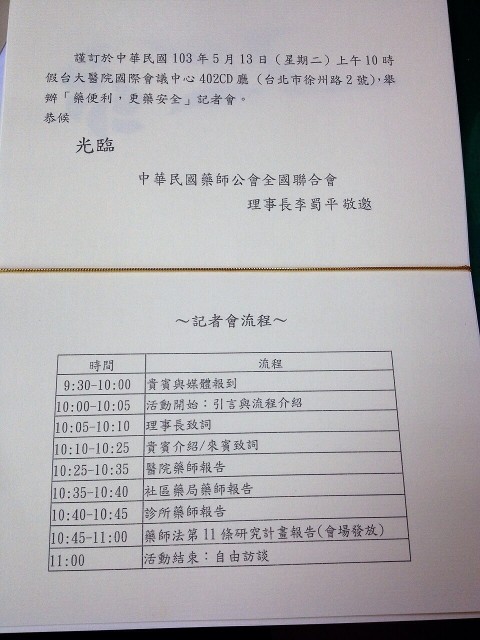 謹訂於中華民國 103 年 5 月 13 日（星期二）上午 10 時
假台大醫院國際會議中心 402CD 廳（台北市徐州路 2 號），舉
辦「藥便利，更藥安全」記者會。
恭候
光臨
中華民國藥師公會全國聯合會
理事長李蜀平敬邀
～記者會流程～
時間 流程
9:30-10:00 貴賓與媒體報到
10:00-10:05 活動開始：引言與流程介紹
10:05-10:10 理事長致詞
10:10-10:25 貴賓介紹/來賓致詞
10:25-10:35 醫院藥師報告
10:35-10:40 社區藥局藥師報告
10:40-10:45 診所藥師報告
10:45-11:00 藥師法第 11 條研究計畫報告(會場發放)
11:00 活動結束：自由訪談